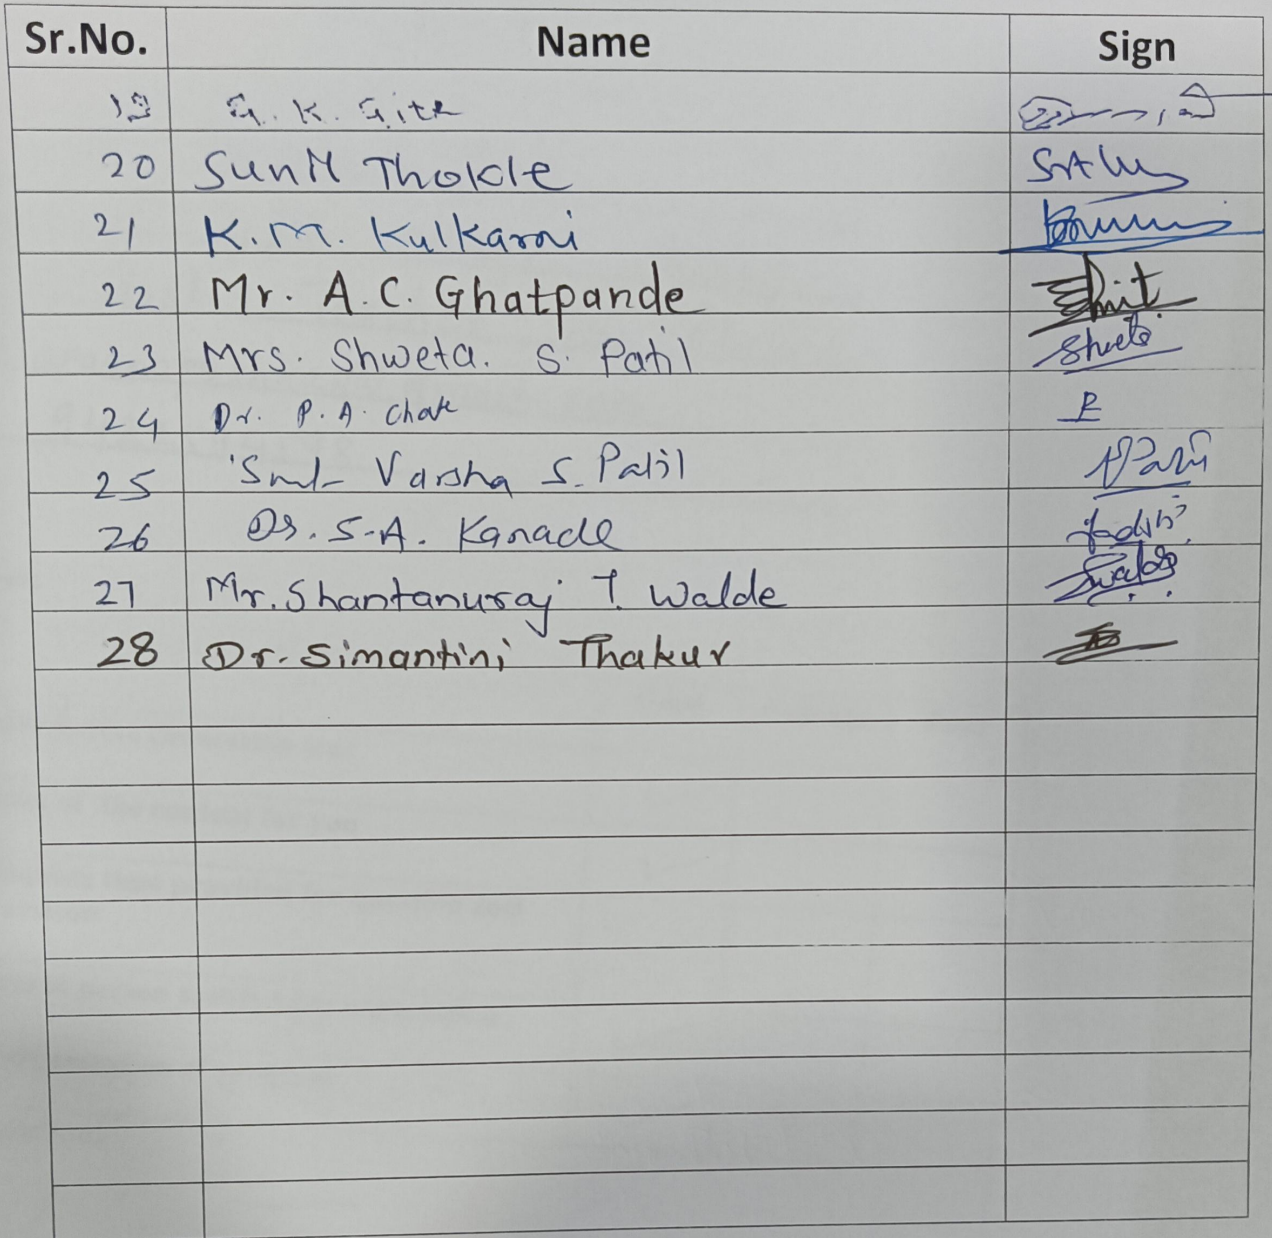 Sr.No. Name Sign
19 G. K. Gite
20 Sunil Thokle
21 K.M. Kulkarni
22 Mr. A.C. Ghatpande
23 Mrs. Shweta. S. Patil Shweta
24 Dr. P.A.
25 Smt Varsha S. Patil
26 Dr. S.A. Kanade
27 Mr. Shantanuraj T. Walde
28 Dr. Simantini Thakur